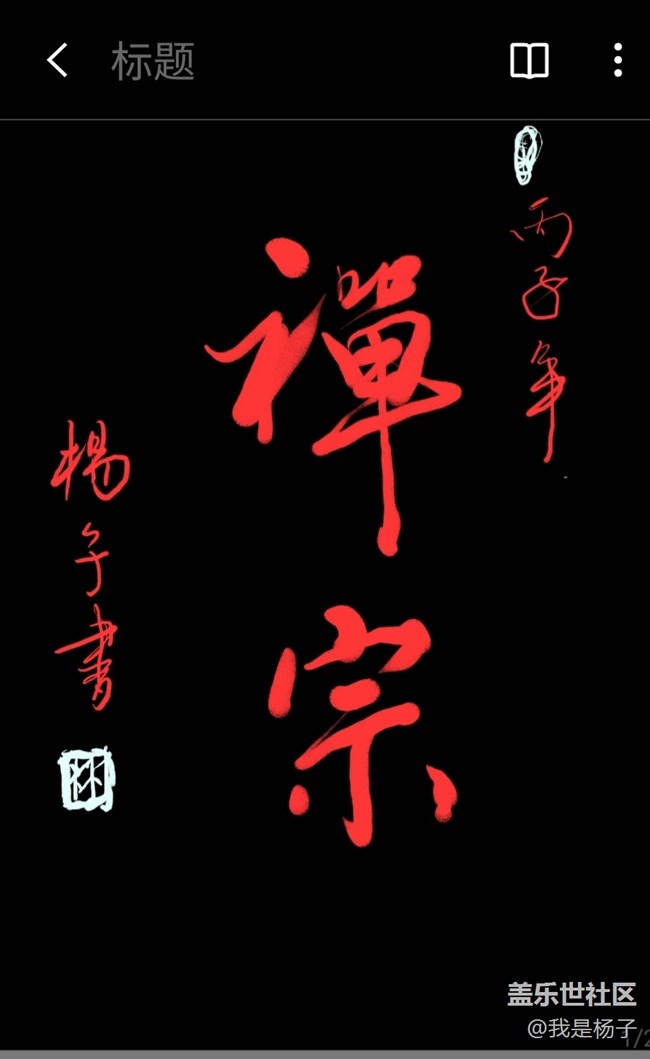 标题
丙子年
禪宗
楊子書
林
盖乐世社区
@我是杨子